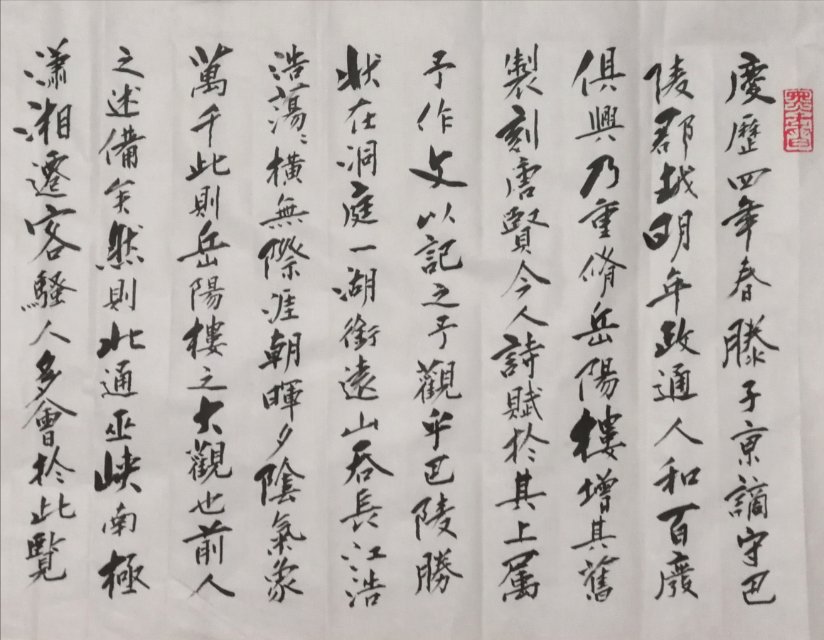 慶歷四年春滕子京謫守巴
陵郡越明年政通人和百廢
俱興乃重脩岳陽樓增其舊
製刻唐賢今人詩賦於其上屬
予作文以記之予觀乎巴陵勝
狀在洞庭一湖銜遠山吞長江浩
浩蕩蕩橫無際涯朝暉夕陰氣象
萬千此則岳陽樓之大觀也前人
之述備矣然則北通巫峽南極
瀟湘遷客騷人多會於此覽